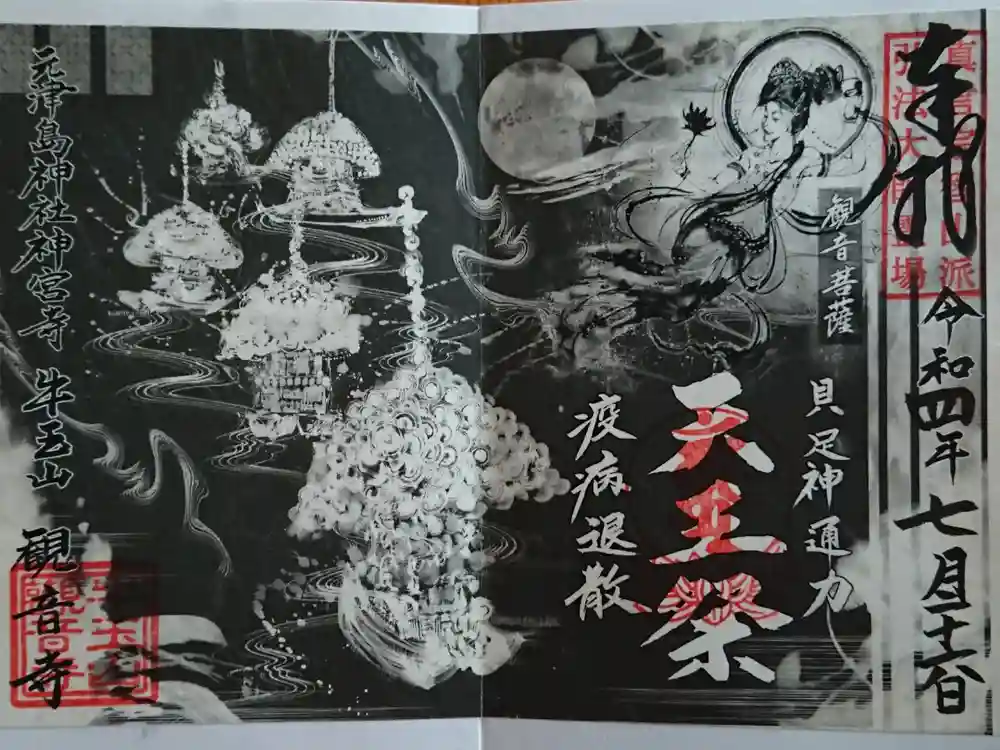 奉拝
令和四年七月十六日
真言宗豊山派
弘法大師霊場
観音菩薩
具足神通力
天王祭
疫病退散
元津島神社神宮寺 牛玉山 観音寺
牛玉山
観音寺